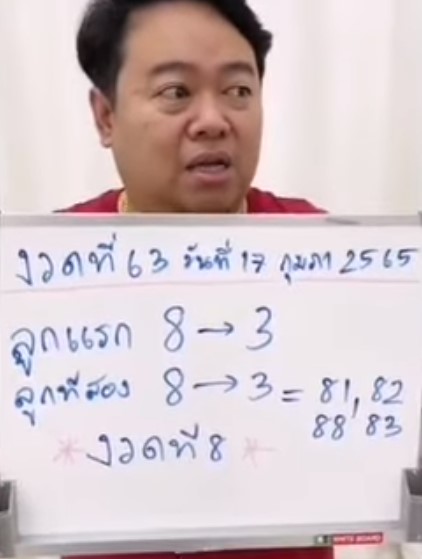 งวดที่ 63 วันที่ 17 กุมภา 2565
ลูกแรก 8→3
ลูกที่สอง 8→3 = 81, 82
88, 83
*งวดที่ 8*
WHITE BOARD